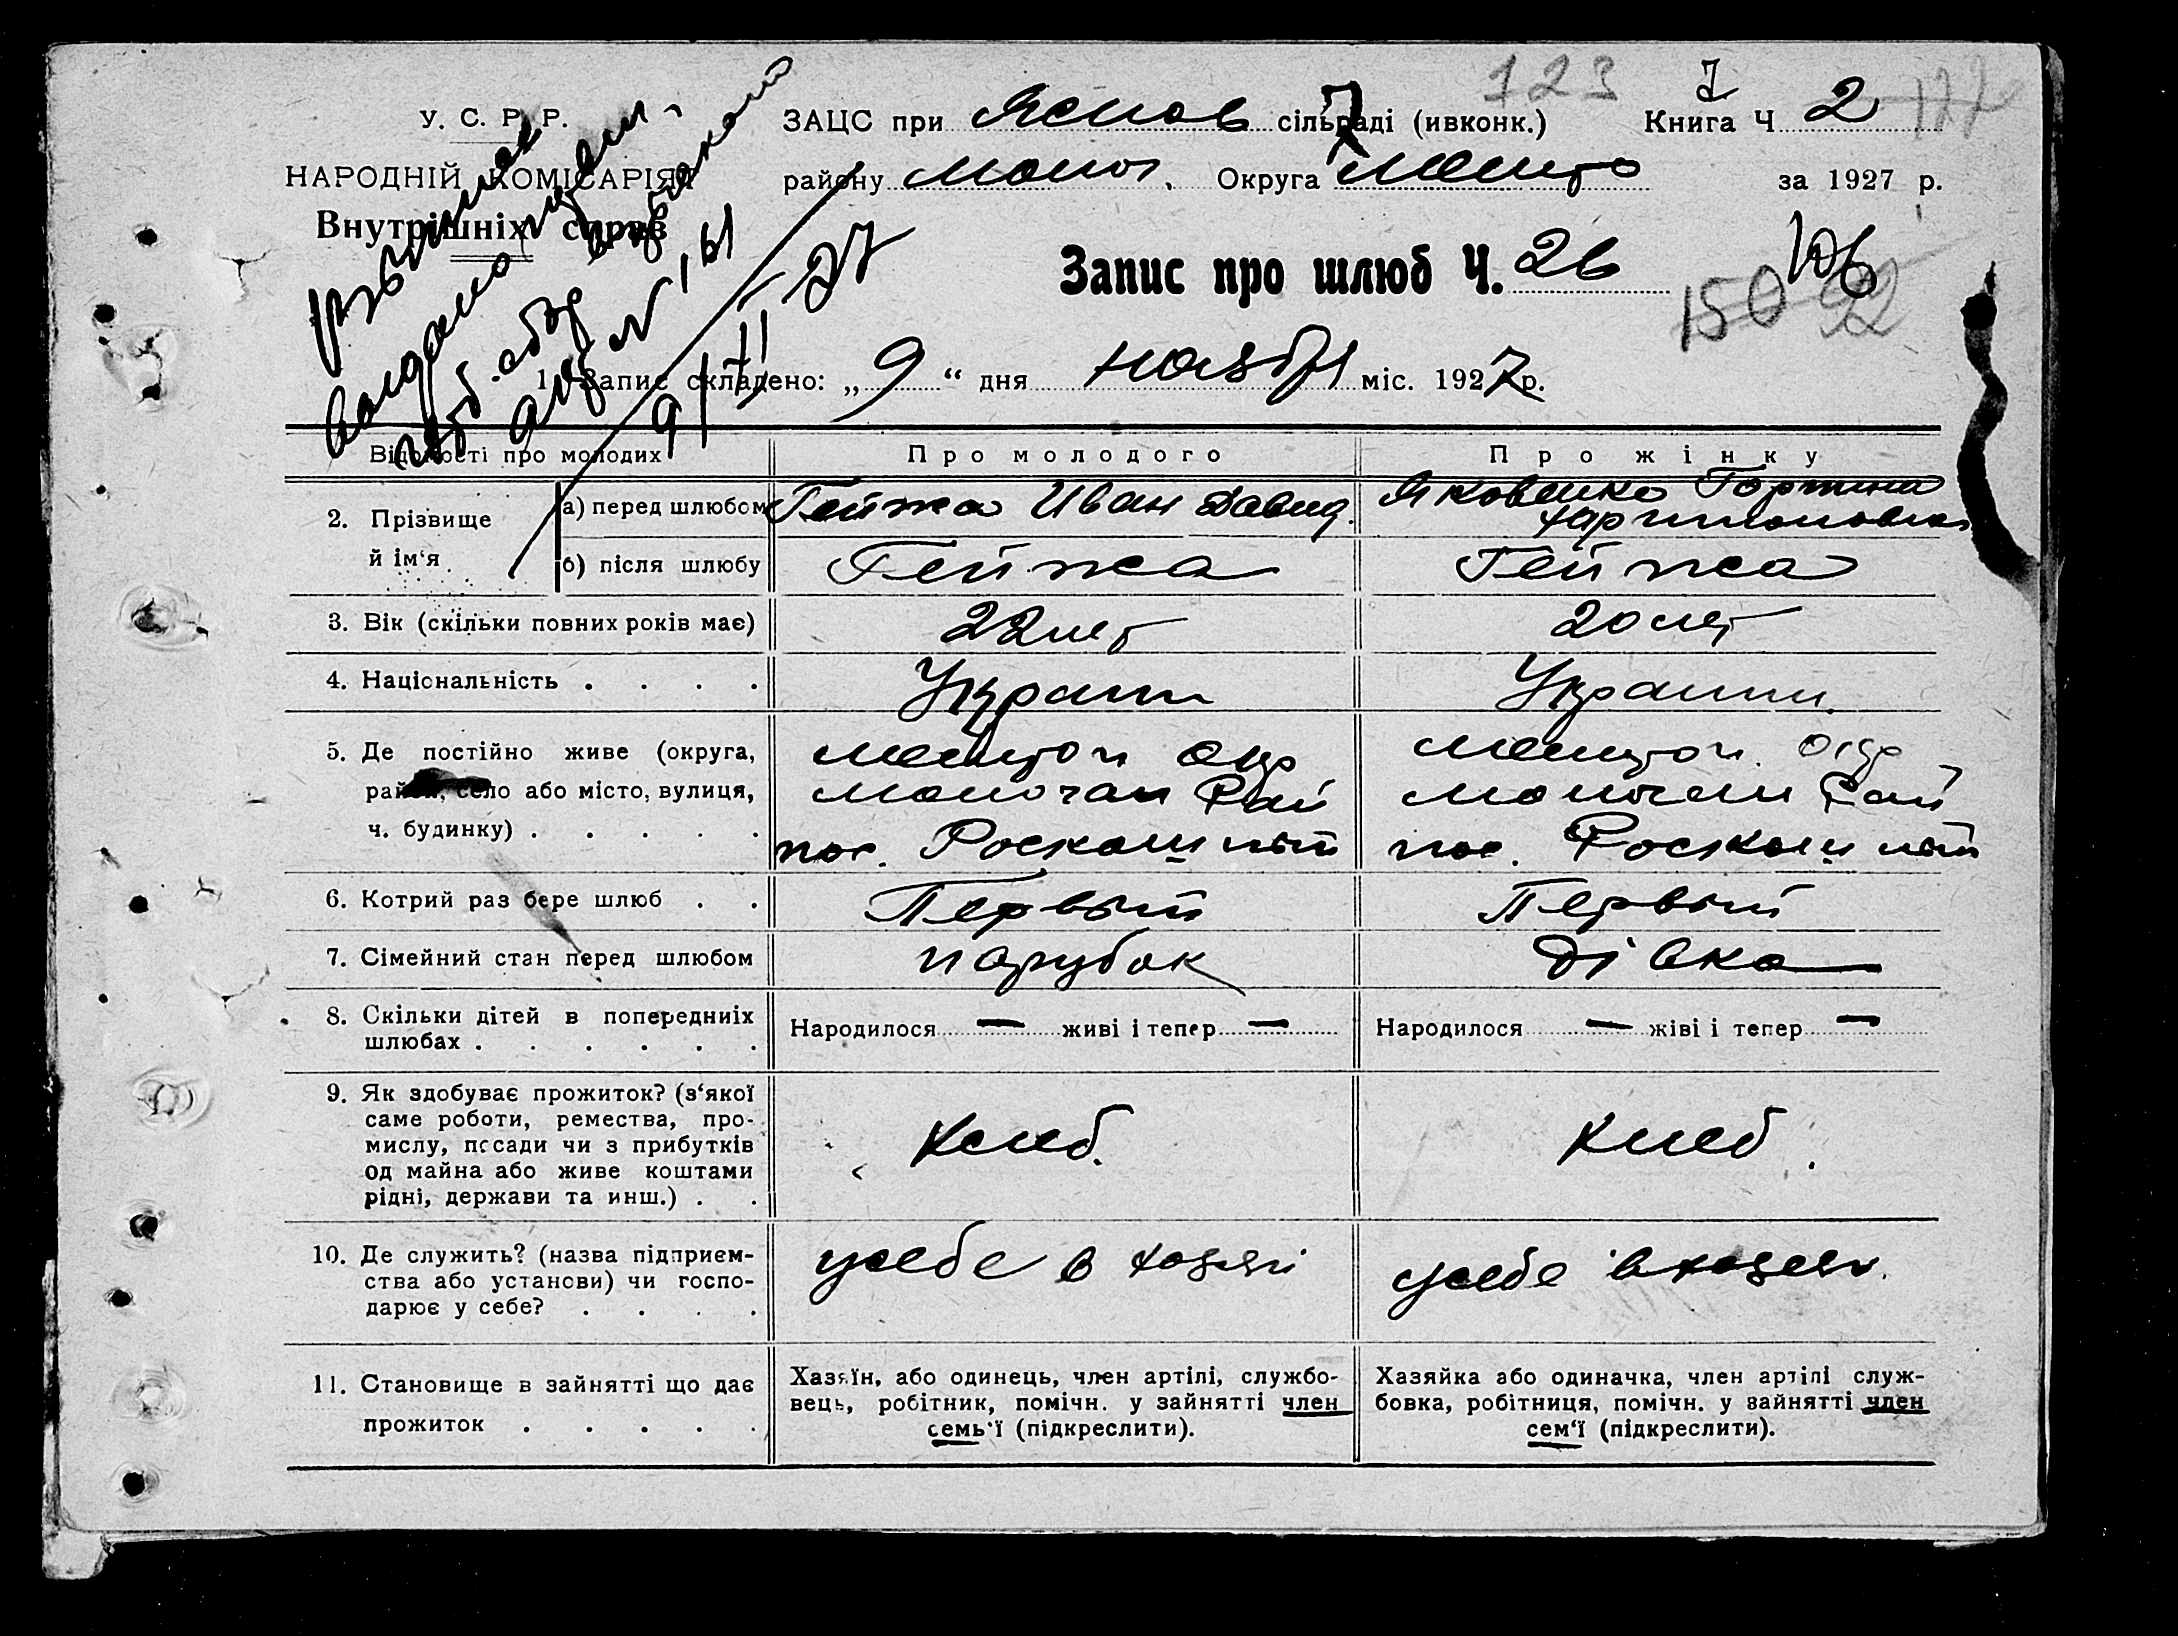 123
У. С. Р. Р.
ЗАЦС при Яснов сільраді (ивконк.) Книга Ч. 2
НАРОДНІЙ КОМІСАРІЯТ
району Молоч. Округа Мелито за 1927 р.
Внутрішніх справ
Запис про шлюб Ч. 26
106
150 92
1. Запис складено: „ 9 “ дня ноября міс. 1927 р.
9/XI 27
Відомості про молодих Про молодого Про жінку
2. Прізвище й ім‘я а) перед шлюбом Гейжа Иван Давид. Яковенко
б) після шлюбу Гейжа Гейжа
3. Вік (скільки повних років має) 22 лет 20 лет
4. Національність . . . . Украин Украин.
5. Де постійно живе (округа, Мелитоп Окр Мелитоп. Окр
район, село або місто, вулиця, Молочан Рай Молочан Рай
ч. будинку) . . . . . пос. Роскошный пос. Роскошный
6. Котрий раз бере шлюб . . Первый Первый
7. Сімейний стан перед шлюбом парубок дівка
8. Скільки дітей в попередниіх Народилося — живі і тепер — Народилося — жіві і тепер —
шлюбах . . . . . .
9. Як здобуває прожиток? (з‘якої
саме роботи, ремества, про-
мислу, посади чи з прибутків Хлеб. Хлеб.
од майна або живе коштами
рідні, держави та инш.) . .
10. Де служить? (назва підприєм- у себе в хозяй у себе в хозяй.
ства або установи) чи госпо-
дарює у себе? . . . .
11. Становище в зайнятті що дає Хазяїн, або одинець, член артілі, службо- Хазяйка або одиначка, член артілі служ-
вець, робітник, помічн. у зайнятті член бовка, робітниця, помічн. у зайнятті член
прожиток . . . . . семь‘ї (підкреслити). сем‘ї (підкреслити).